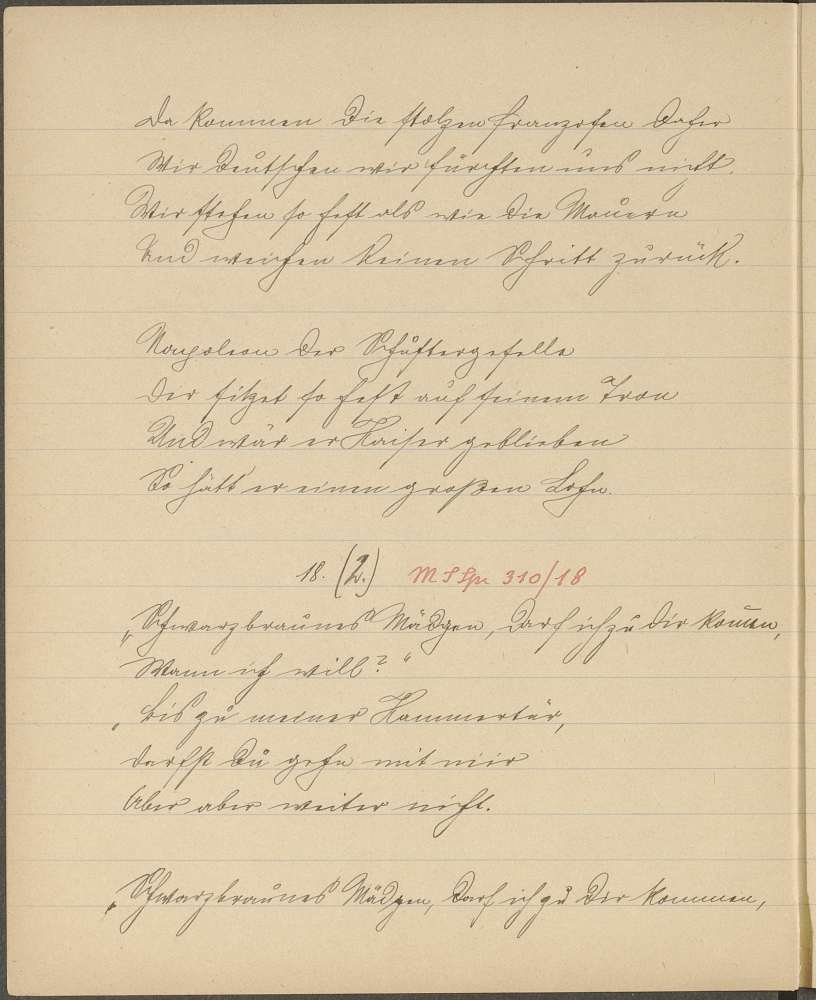 Da kommen die stolzen Franzosen daher
Wir Deutschen wir fürchten uns nicht.
Wir stehen so fest als wie die Mauern
Und weichen keinen Schritt zurück.
Napoleon der Schustergeselle
Der sitzet so fest auf seinem Tron
Und wär er Kaiser geblieben
So hätt er einen großen Lohn.
18. (2.) M S Spr 310/18
„Schwarzbraunes Mädgen, darf ich zu dir kom̅en,
Wann ich will?“
„Bis zu meiner Kammertür,
darfst du gehn mit mir
Aber aber weiter nicht.
„Schwarzbraunes Mädgen, darf ich zu dir kommen,